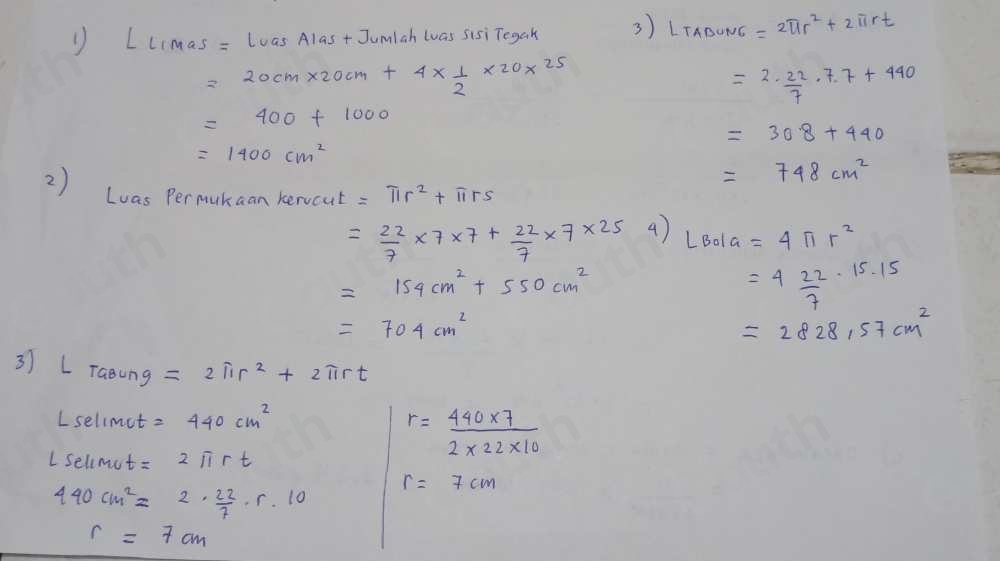 1) L LIMAS = Luas Alas + Jumlah luas sisi Tegak
= 20cm × 20cm + 4 × 1/2 × 20 × 25
= 400 + 1000
= 1400 cm²
2) Luas Permukaan kerucut = πr² + πrs
= 22/7 × 7 × 7 + 22/7 × 7 × 25
= 154 cm² + 550 cm²
= 704 cm²
3) L Tabung = 2πr² + 2πrt
L selimut = 440 cm²
L selimut = 2 π r t
440 cm² = 2 . 22/7 . r . 10
r = 7 cm
r = 440 × 7 / 2 × 22 × 10
r = 7 cm
3) L TABUNG = 2πr² + 2πrt
= 2 . 22/7 . 7.7 + 440
= 308 + 440
= 748 cm²
4) L Bola = 4 π r²
= 4 22/7 . 15.15
= 2828,57 cm²